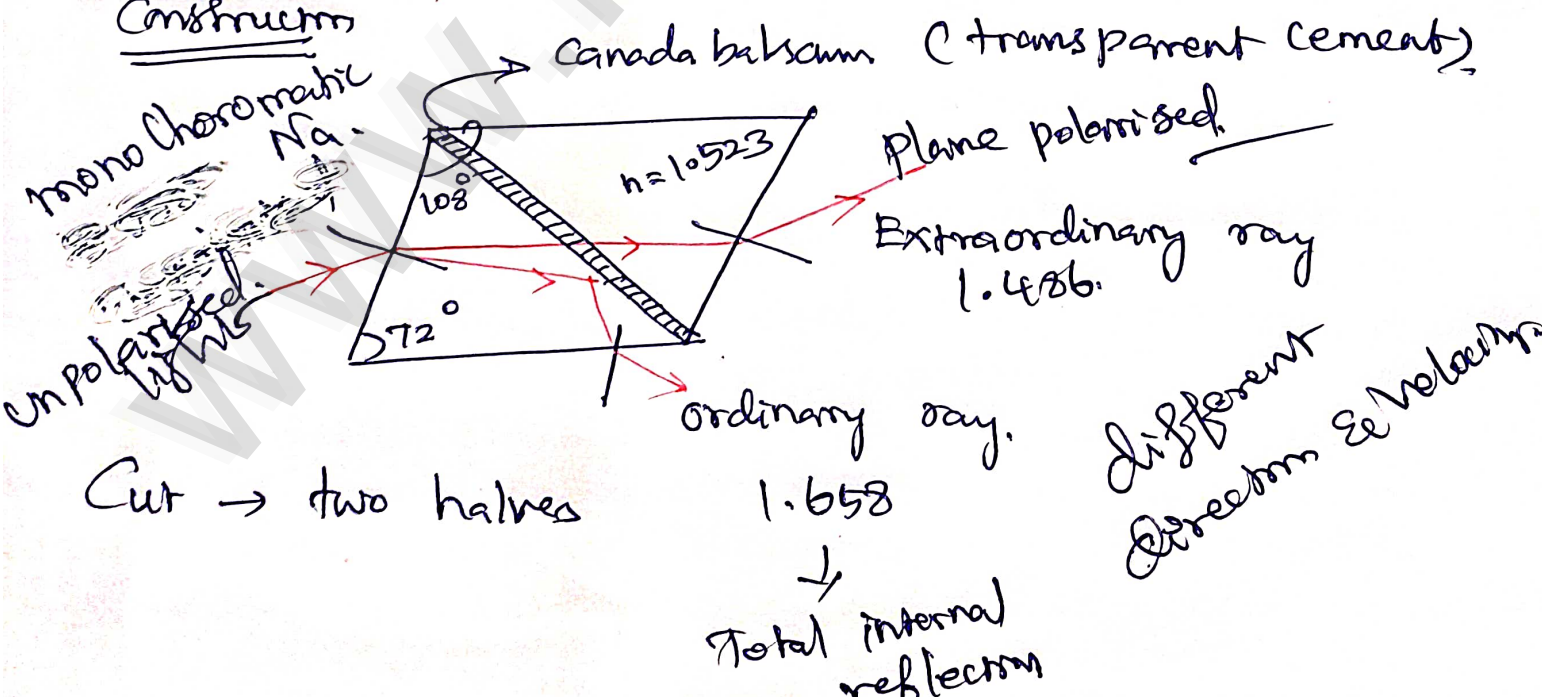 Construction
Canada balsam (transparent cement)
monochoromatic
Na.
unpolarised
light
108°
n=1.523
72°
Plane polarrised
Extraordinary ray
1.486.
Ordinary ray.
1.658
↓
Total internal
reflection
different
direction & velocity.
Cut → two halves
www.